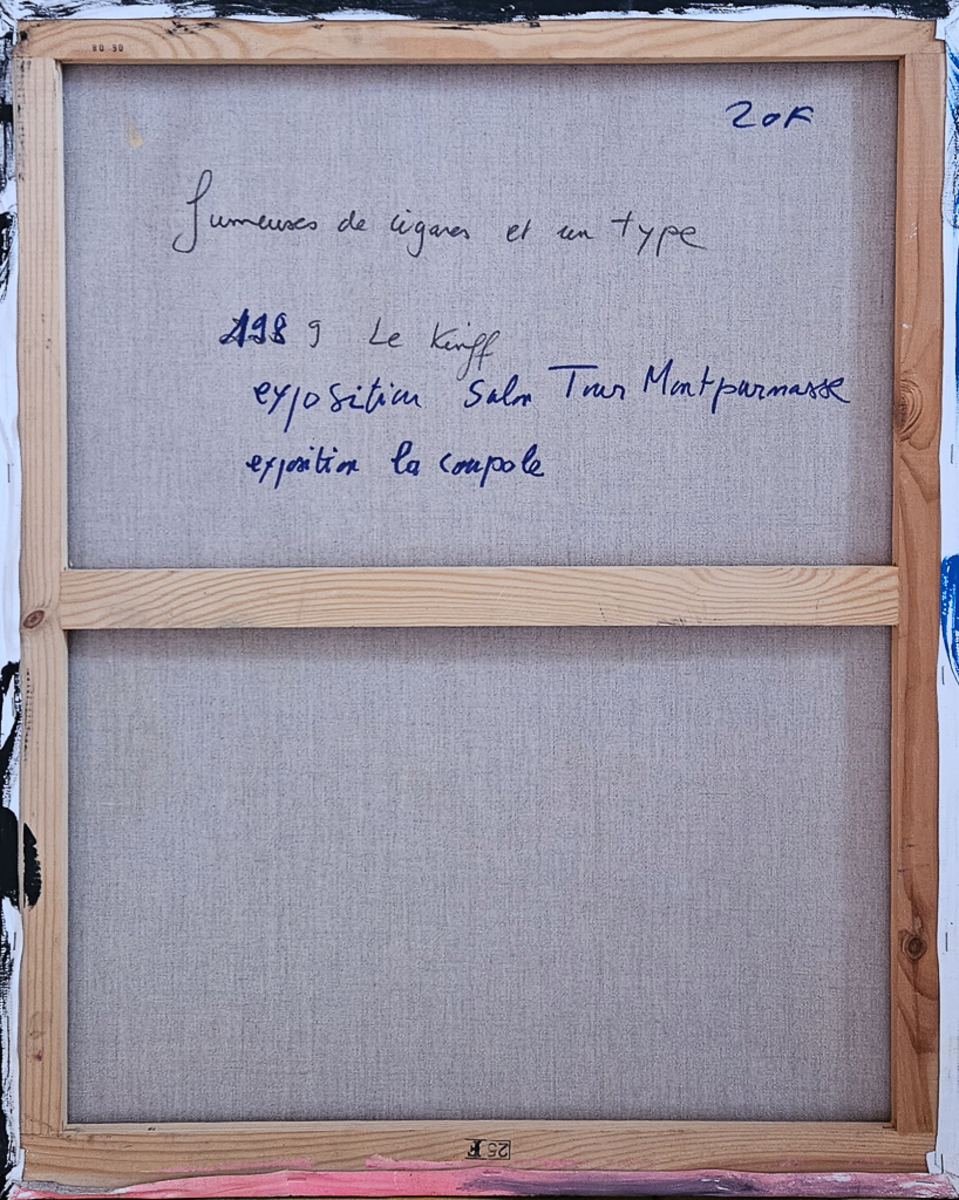 80 90
20K
fumeuses de cigares et un type
1989 Le Kinff
exposition Salon Tour Montparnasse
exposition la coupole
25 F